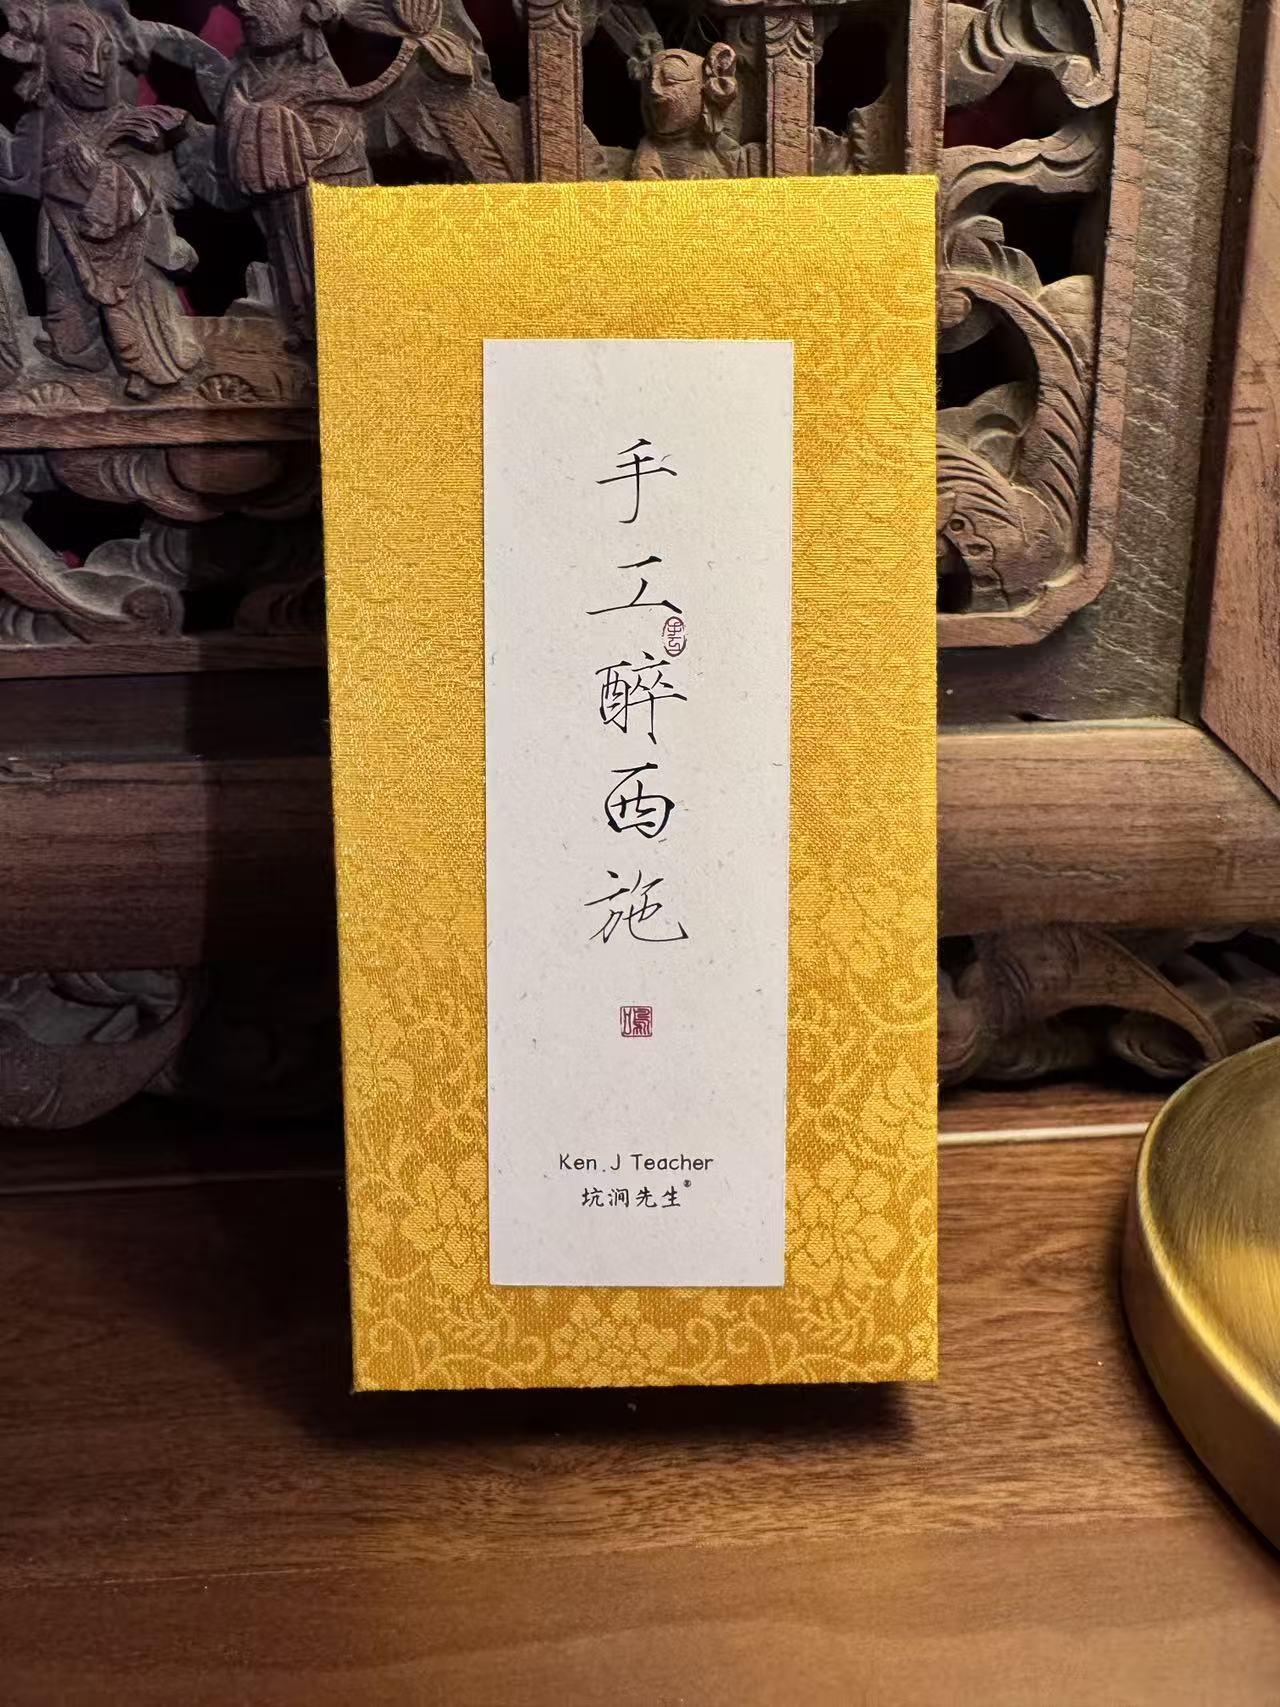 手工醉西施
Ken.J Teacher
坑涧先生®